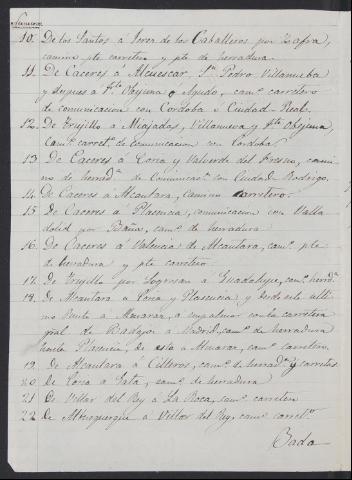 Numeros
10. De los Santos á Jerez de los Caballeros por Zafra,
camino pte carretero y pte de herradura.
11. De Cáceres á Alcuescar, Sn Pedro, Villanueba
y sigue á Fte Obejuna ó Agudo, camo carretero
de comunicacion con Cordoba ó Ciudad-Real.
12. De Trujillo á Miajadas, Villanueva y Fte Obejuna,
camo carreto de comunicacion con Cordoba.
13. De Caceres á Coria y Valverde del Fresno, cami-
no de herrada de Comunicacion con Ciudad Rodrigo.
14. De Caceres á Alcantara, camino carretero.
15. De Caceres á Plasencia, comunicacion con Valla
dolid por Baños, camo de herradura
16. De Caceres á Valencia de Alcantara, camo pte
de herradura y pte carretero.
17. De Trujillo por Logrosan á Guadalupe, camo herrda
18. De Alcantara á Coria y Plasencia, y desde este ulti-
mo Punto á Almaraz, á empalmar con la carretera
gral de Badajoz á Madrid, camo de herradura
hasta Plasencia, de esta á Almaraz, camo carretero.
19. De Alcantara á Cilleros, camo de herrada y carretero
20. De Coria á Gata, camo de herradura
21. De Villar del Rey á La Roca, camo carretero
22. De Alburquerque á Villar del Rey, camo carreto
Bada